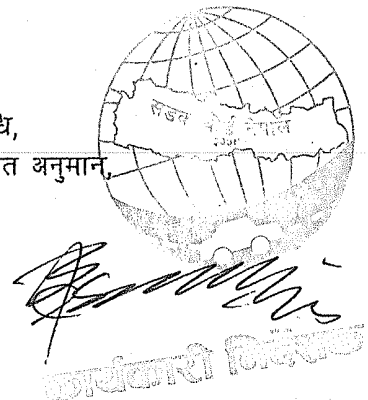 धि,
त अनुमान,
सडक बोर्ड नेपाल
कार्यकारी निर्देशक